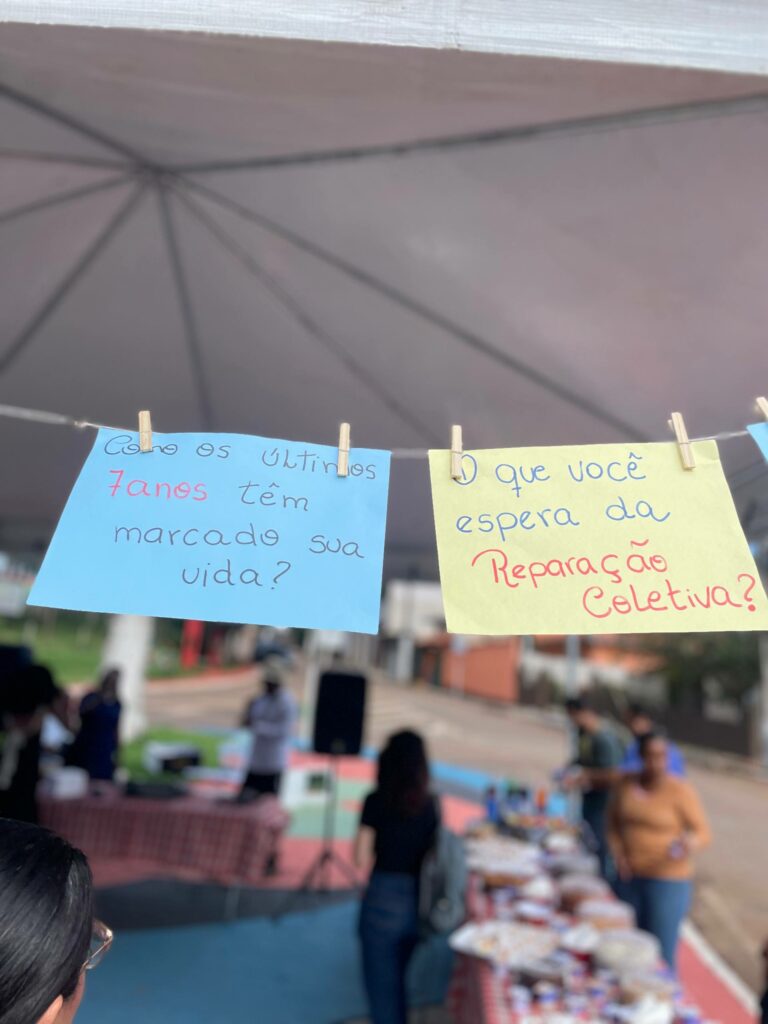 Como os últimos
7anos têm
marcado sua
vida?
O que você
espera da
Reparação
Coletiva?